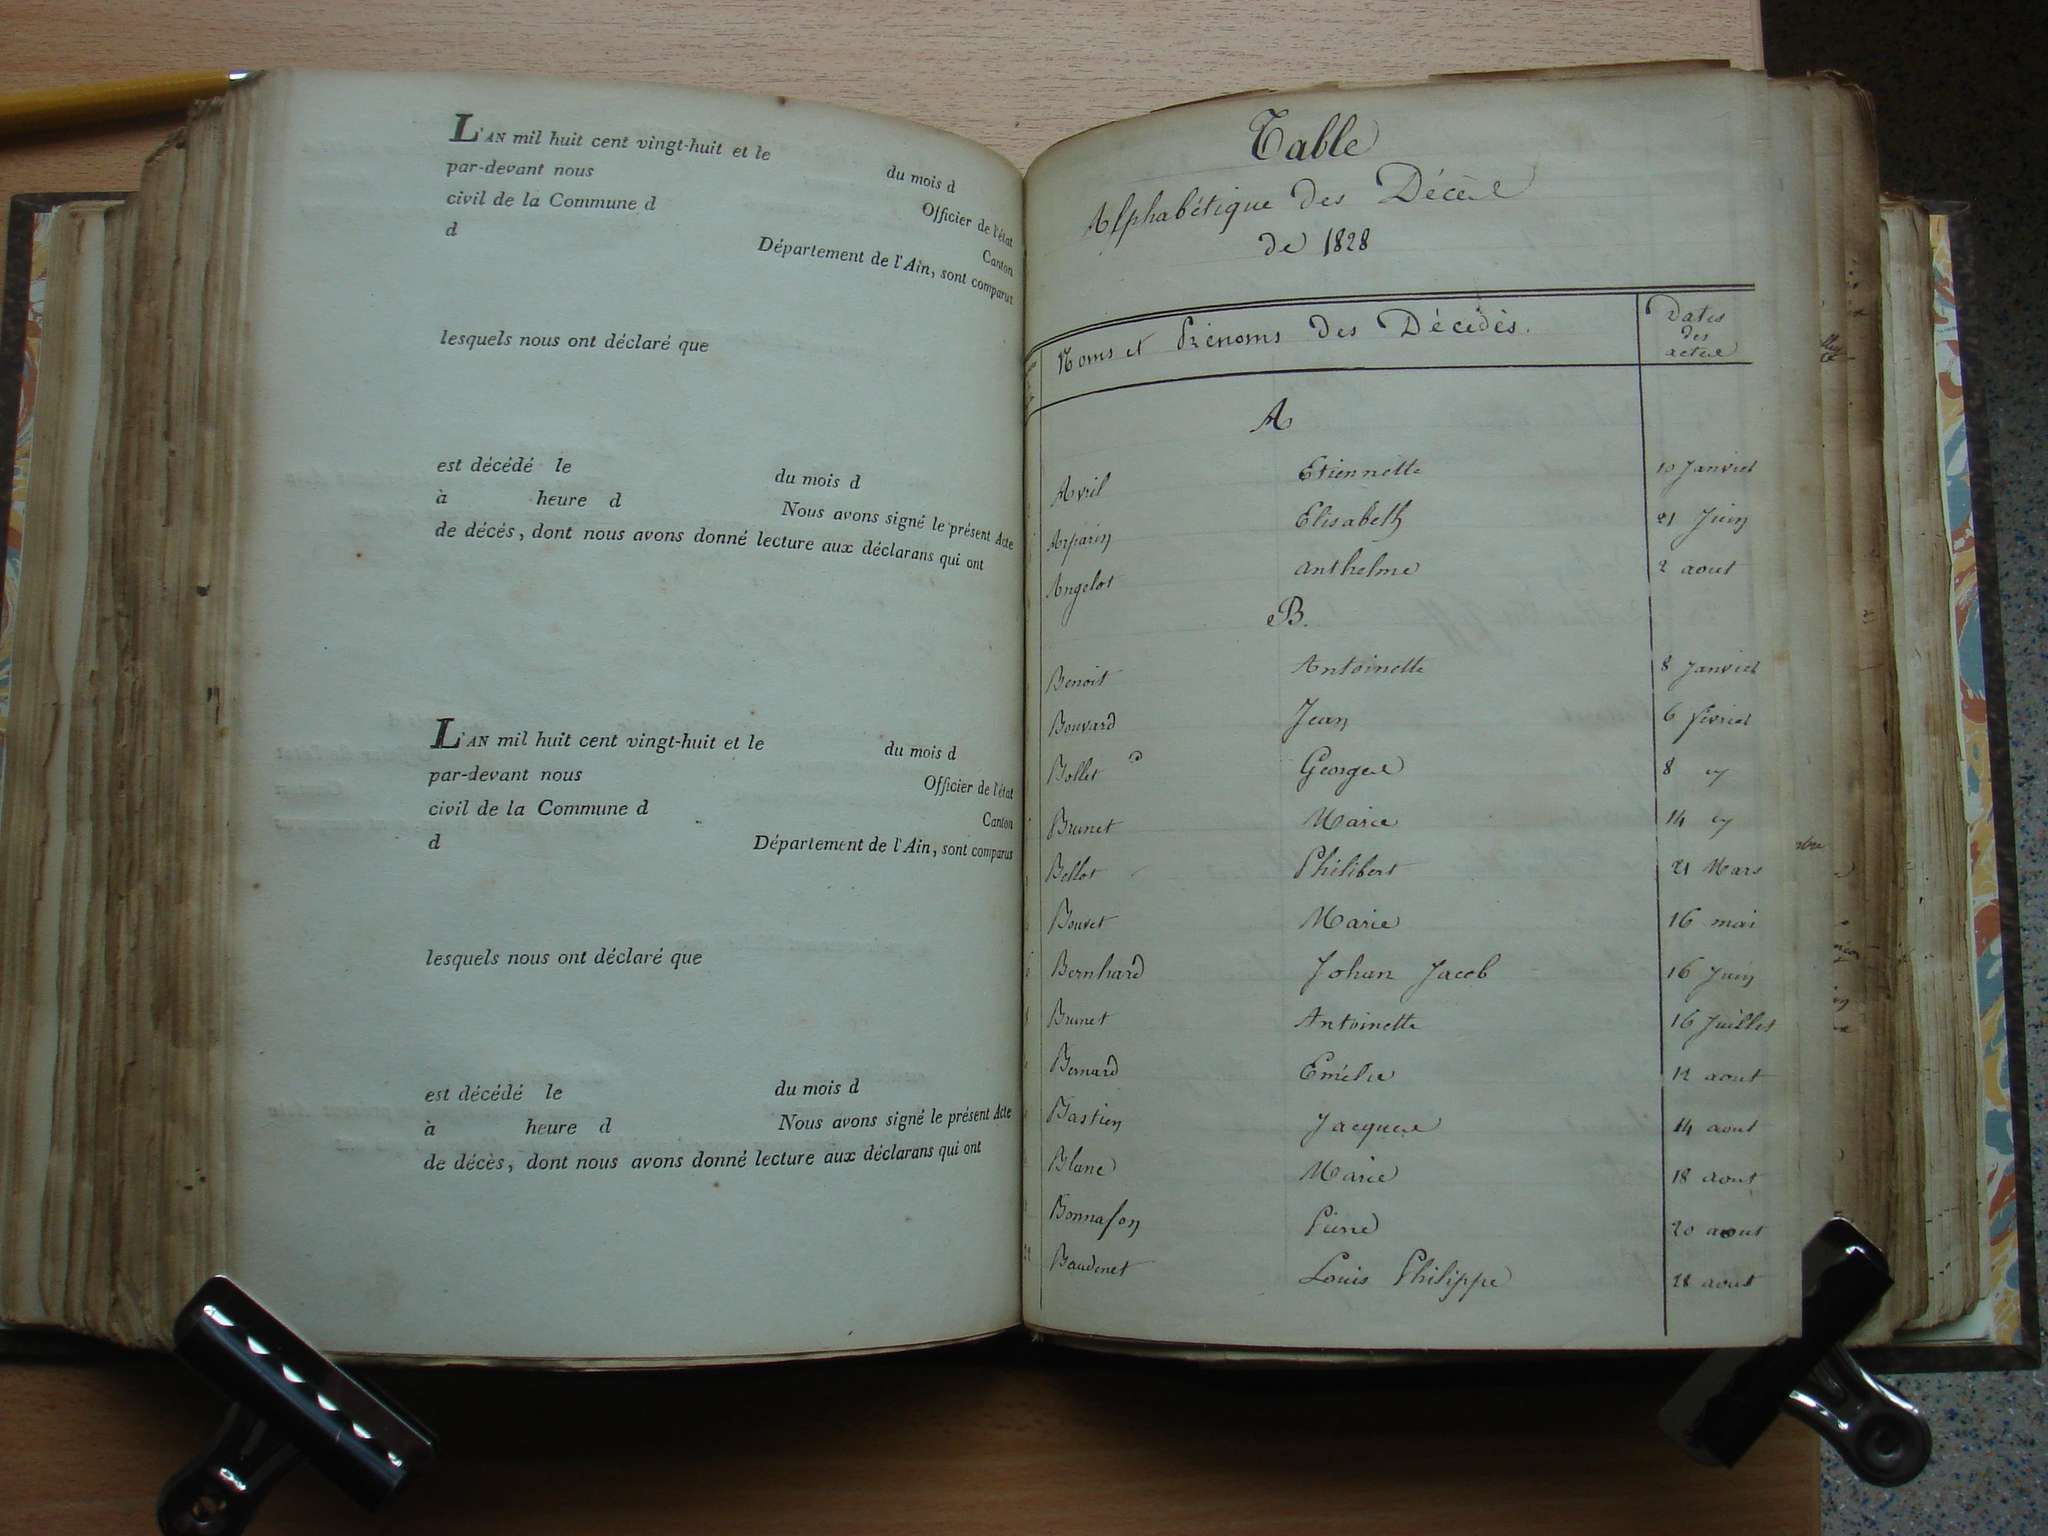 L'AN mil huit cent vingt-huit et le du mois d
par-devant nous Officier de l'état
civil de la Commune d Canton
d Département de l'Ain, sont comparus
lesquels nous ont déclaré que
est décédé le du mois d
à heure d Nous avons signé le présent Acte
de décés, dont nous avons donné lecture aux déclarans qui ont
L'AN mil huit cent vingt-huit et le du mois d
par-devant nous Officier de l'état
civil de la Commune d Canton
d Département de l'Ain, sont comparus
lesquels nous ont déclaré que
est décédé le du mois d
à heure d Nous avons signé le présent Acte
de décès, dont nous avons donné lecture aux déclarans qui ont
Table
Alphabétique des Décès
de 1828
Noms et Prénoms des Décédés. Dates
des
actes
A
Avril Etiennette 10 Janvier
Arparin Elisabeth 21 Juin
Angelot anthelme 2 aout
B.
Benoit Antoinette 8 Janvier
Bouvard Jean 6 février
Bollet Georges 8
Brunet Marie 14
Bellot Philibert 21 Mars
Bouvet Marie 16 mai
Bernhard Johan Jacob 16 Juin
Brunet Antoinette 16 Juillet
Bernard Emélie 12 aout
Bastien Jacques 14 aout
Blanc Marie 18 aout
Bonnafon Pierre 20 aout
Baudenet Louis Philippe 28 aout